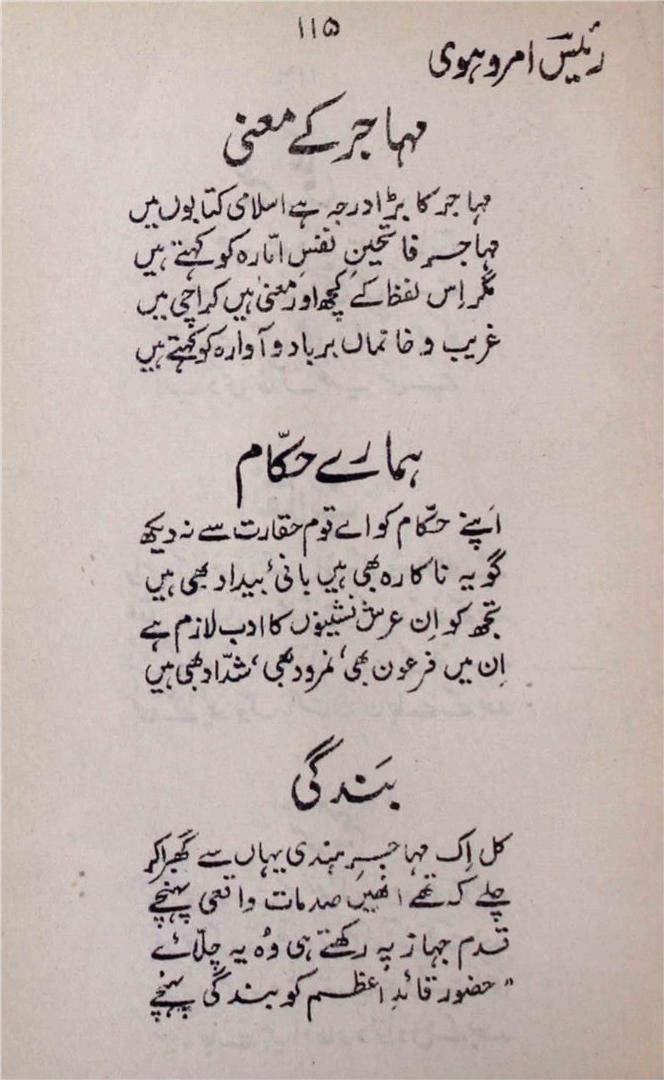 ۱۱۵
رئیس امروہوی
مہاجر کے معنی
مہاجر کا بڑا درجہ ہے اسلامی کتابوں میں
مہاجر فاتحینِ نفسِ امّارہ کو کہتے ہیں
مگر اِس لفظ کے کچھ اور معنیٰ ہیں کراچی میں
غریب و خانماں برباد و آوارہ کو کہتے ہیں
ہمارے حکّام
اَپنے حکّام کو اے قوم حقارت سے نہ دیکھ
گو یہ ناکارہ بھی ہیں بانیٔ بیداد بھی ہیں
تجھ کو اِن عرش نشینوں کا ادب لازم ہے
اِن میں فرعون بھی، نمرود بھی، شدّاد بھی ہیں
بَندگی
کل اِک مہاجرِ ہندی یہاں سے گھَبرا کر
چلے کہ تھے انھیں صدمات واقعی پہنچے
قدم جہاز پہ رکھتے ہی وُہ یہ چلّائے
"حضور قائدِ اعظم کو بندگی پہنچے